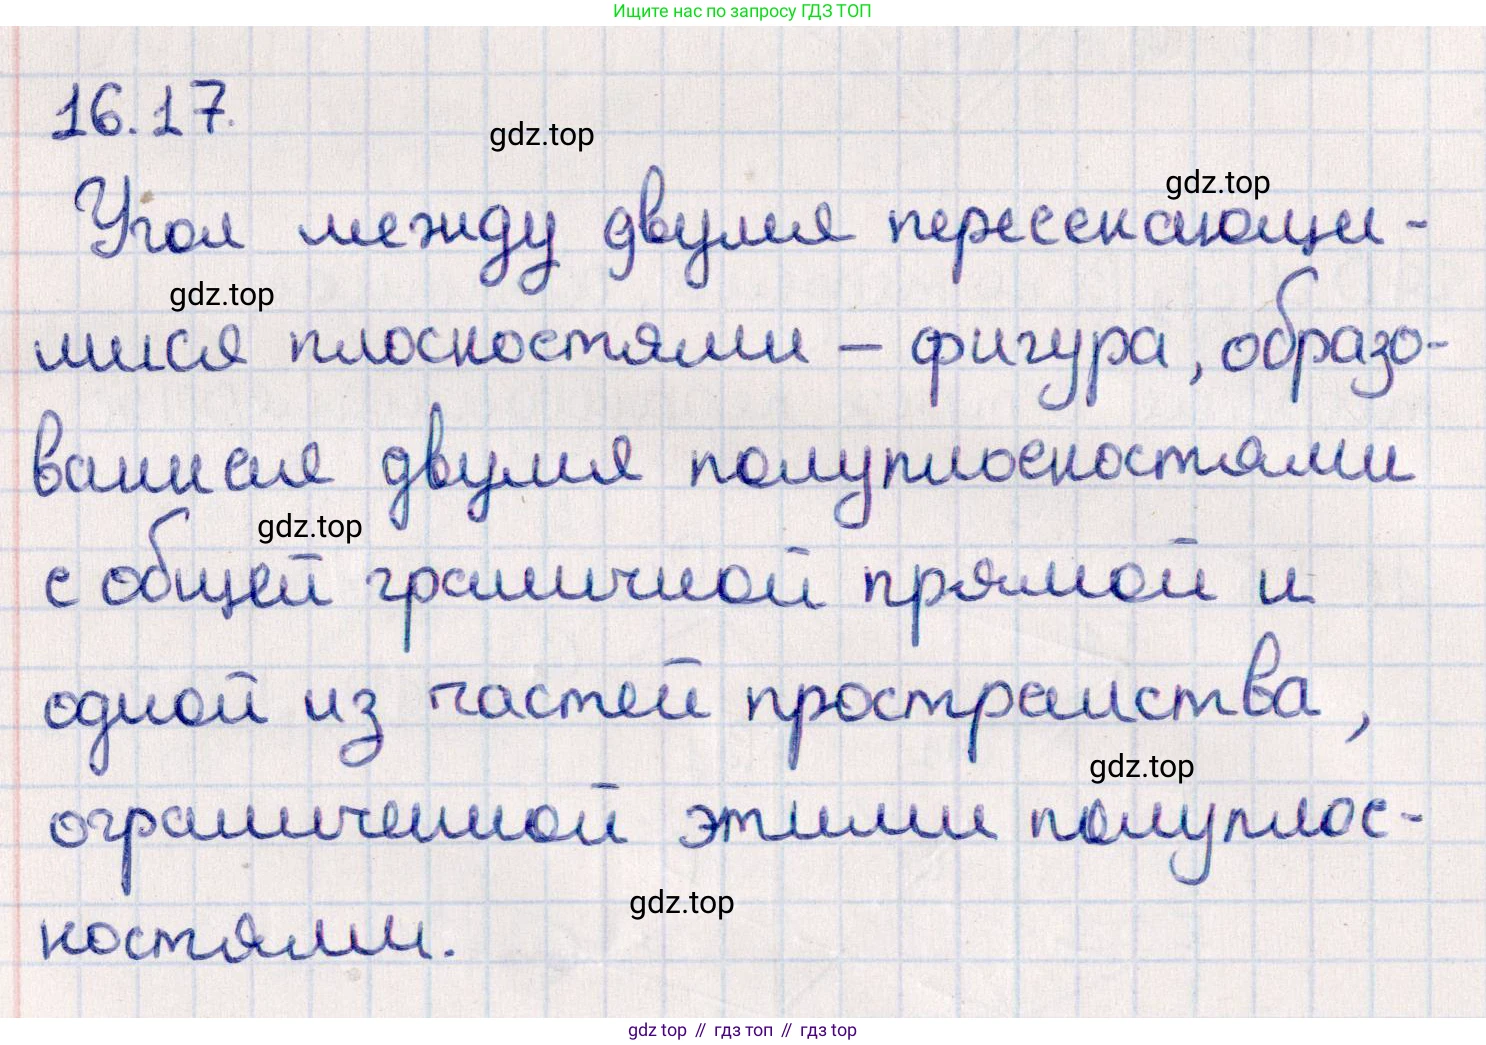 Ищите нас по запросу ГДЗ ТОП
16.17.
gdz.top
gdz.top
Угол между двумя пересекающи-
gdz.top
мися плоскостями – фигура, образо-
ванная двумя полуплоскостями
gdz.top
с общей граничной прямой и
одной из частей пространства,
gdz.top
ограниченной этими полуплос-
gdz.top
костями.
gdz top // гдз топ // gdz top